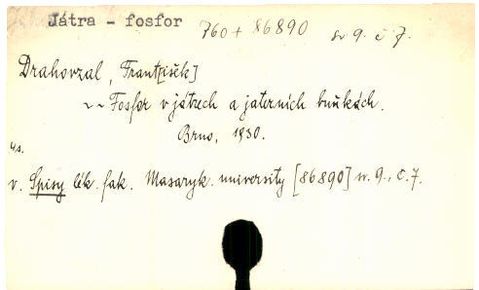 Játra - fosfor 760 + 86890 sv 9. č 7.
Drahovzal, Frant[išek]
~~ Fosfor v játrech a jaterních buňkách.
Brno, 1930.
v. Spisy lék. fak. Masaryk. university [86890] sv. 9., č. 7.